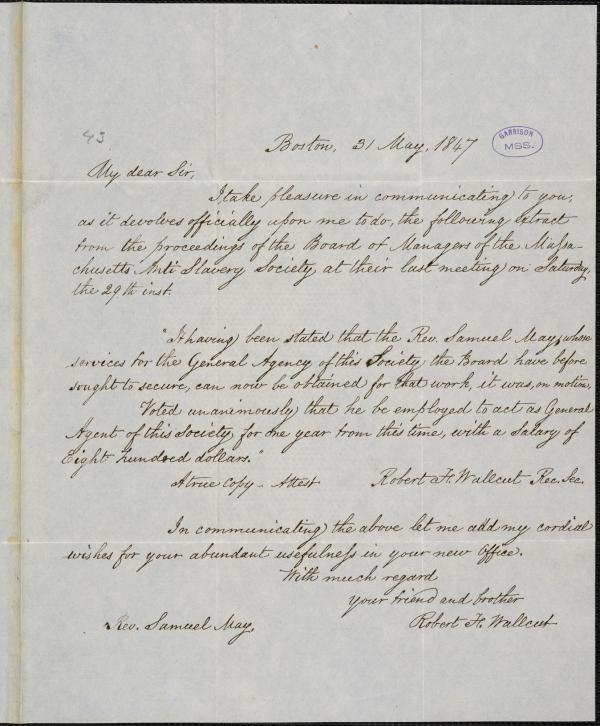 43
Boston, 31 May, 1847
GARRISON
MSS.
My dear Sir,
I take pleasure in communicating to you,
as it devolves officially upon me to do, the following extract
from the proceedings of the Board of Managers of the Massa-
chusetts Anti Slavery Society at their last meeting on Saturday,
the 29th inst.
"It having been stated that the Rev. Samuel May, whose
services for the General Agency of this Society the Board have before
sought to secure, can now be obtained for that work, it was, on motion,
Voted unanimously that he be employed to act as General
Agent of this Society for one year from this time, with a Salary of
Eight hundred dollars."
A true Copy - Attest Robert F. Wallcut Rec. Sec.
In communicating the above let me add my cordial
wishes for your abundant usefulness in your new Office.
With much regard
your friend and brother
Rev. Samuel May. Robert F. Wallcut